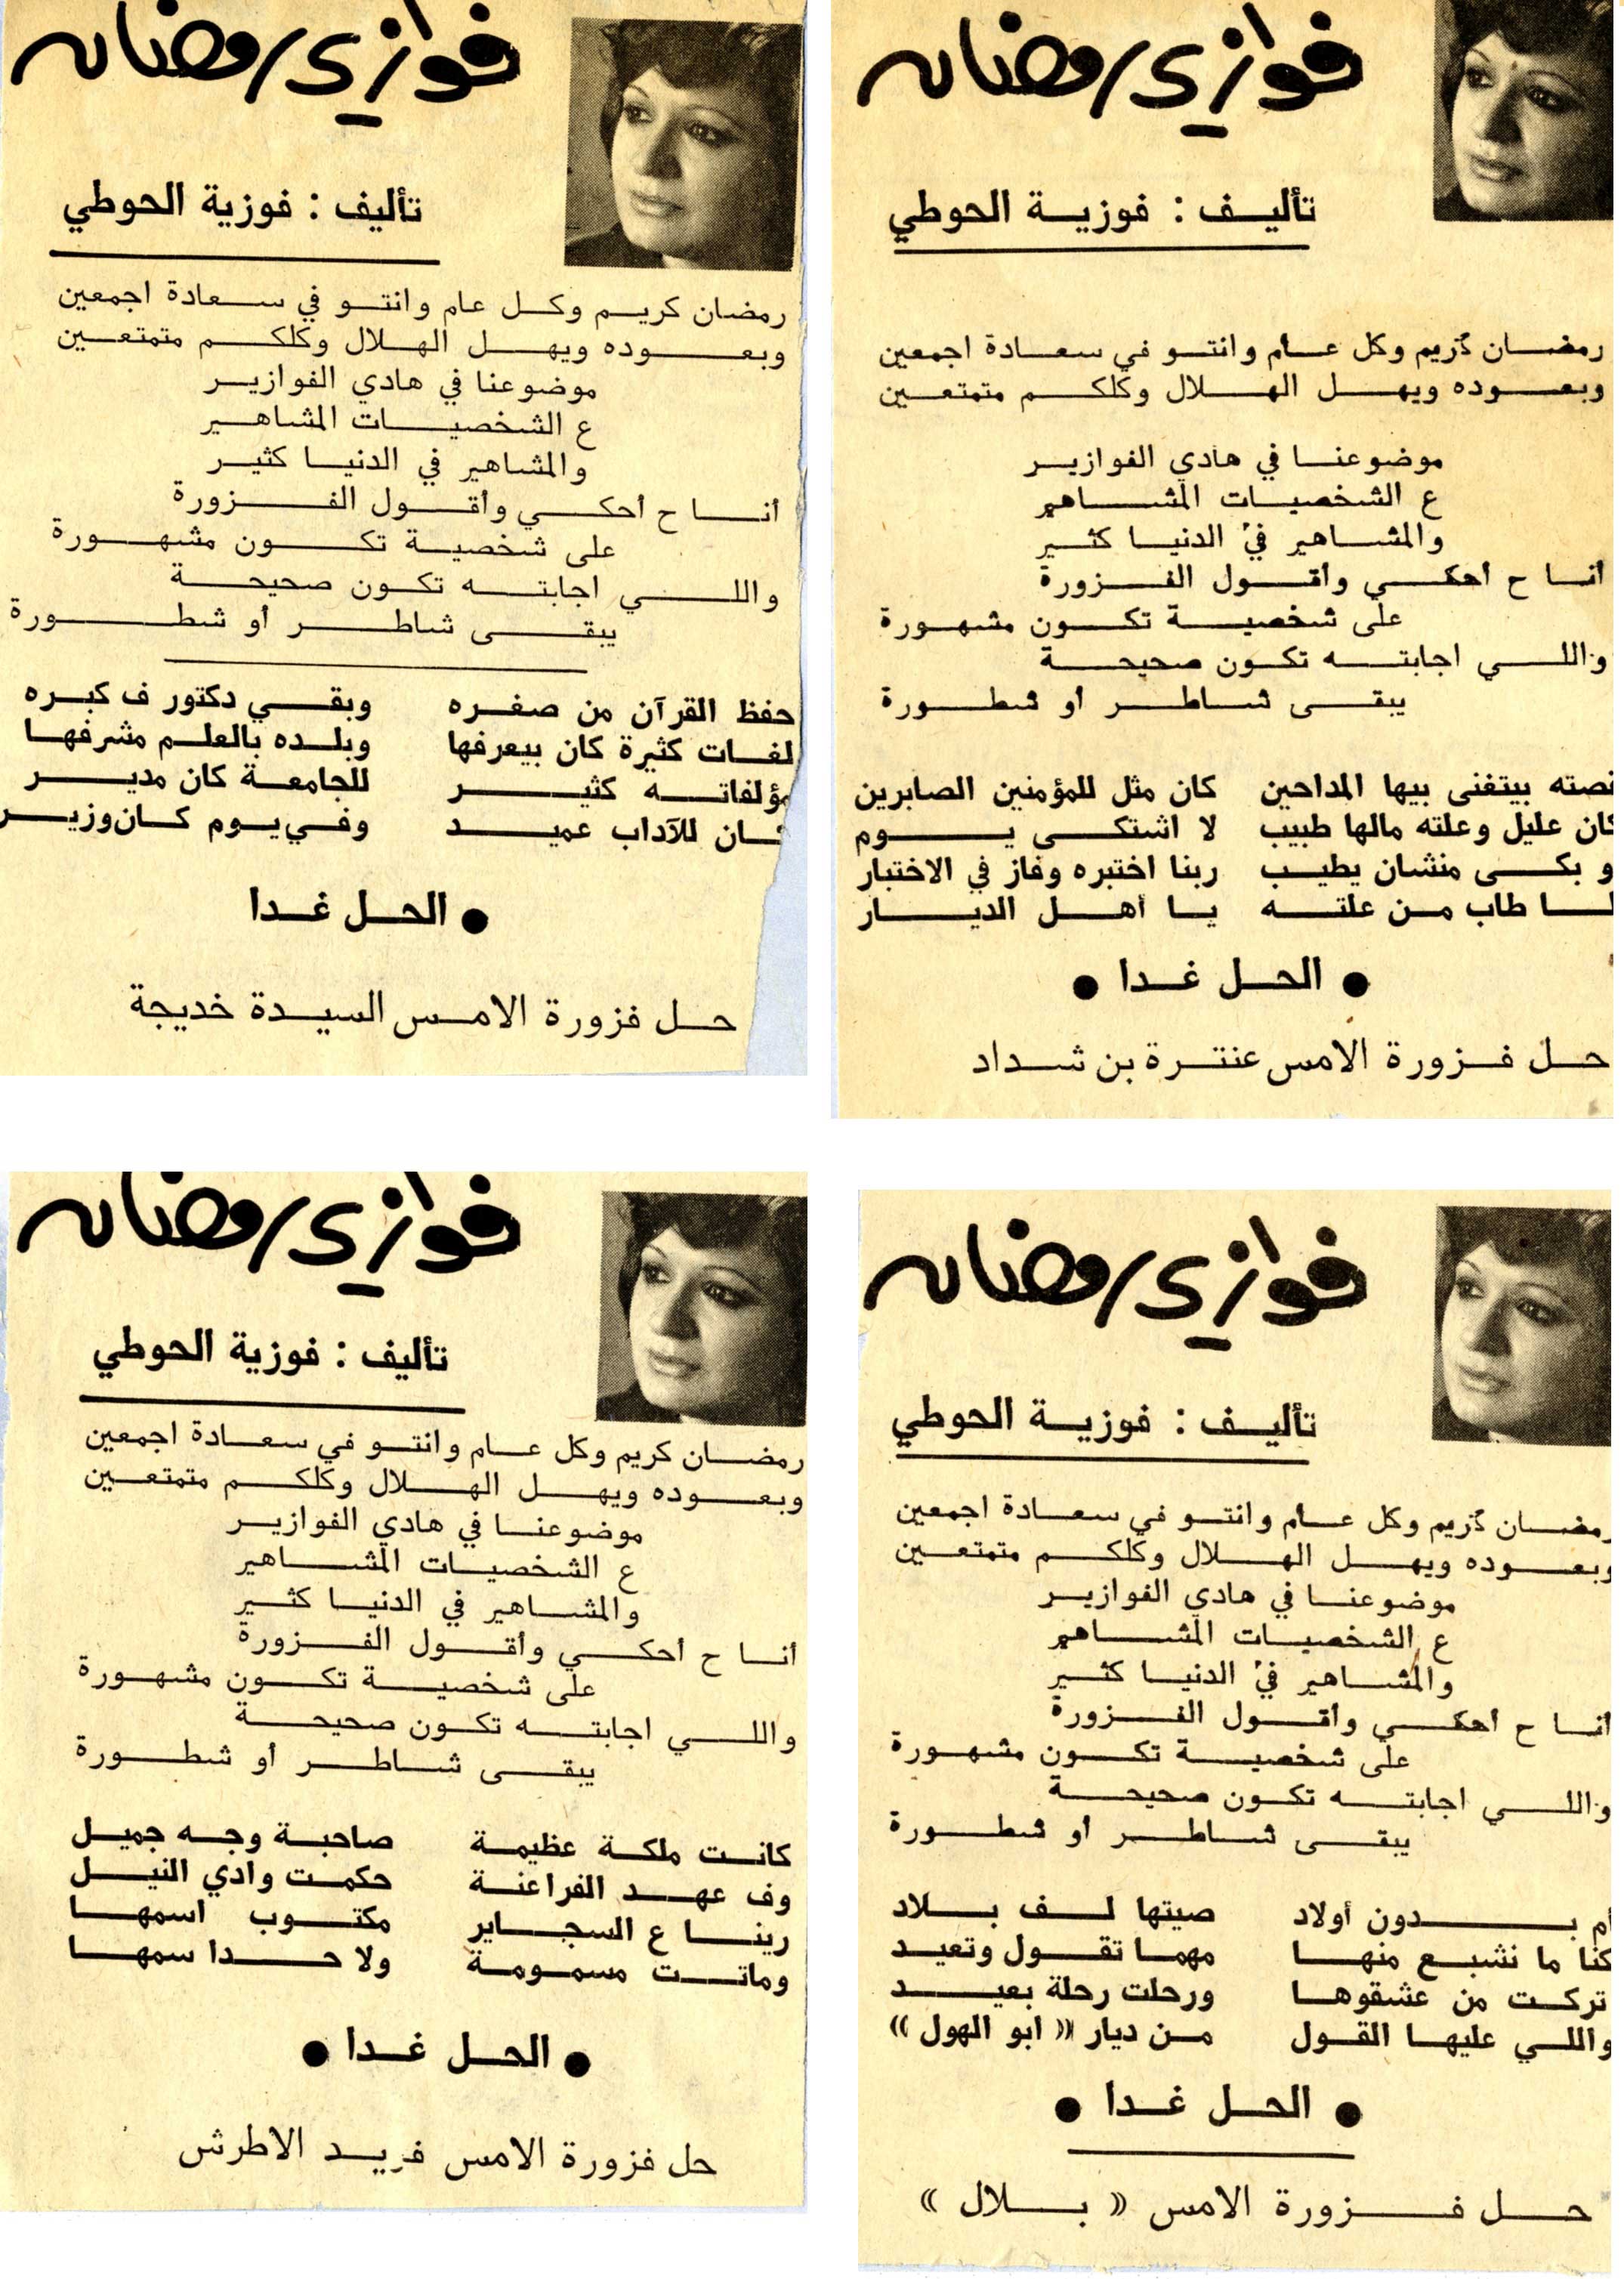 فوازير رمضان
تأليف : فوزية الحوطي
رمضان كريم وكل عام وانتو في سعادة اجمعين
وبعوده ويهل الهلال وكلكم متمتعين
موضوعنا في هادي الفوازير
ع الشخصيات المشاهير
والمشاهير في الدنيا كثير
أنا ح أحكي وأقول الفزورة
على شخصية تكون مشهورة
واللي اجابته تكون صحيحة
يبقى شاطر أو شطورة
حفظ القرآن من صغره وبقي دكتور ف كبره
لغات كثيرة كان بيعرفها وبلده بالعلم مشرفها
مؤلفاته كثير للجامعة كان مدير
كان للآداب عميد وفي يوم كان وزير
● الحل غدا
حل فزورة الامس السيدة خديجة
فوازير رمضان
تأليف : فوزية الحوطي
رمضان كريم وكل عام وانتو في سعادة اجمعين
وبعوده ويهل الهلال وكلكم متمتعين
موضوعنا في هادي الفوازير
ع الشخصيات المشاهير
والمشاهير في الدنيا كثير
أنا ح أحكي وأقول الفزورة
على شخصية تكون مشهورة
واللي اجابته تكون صحيحة
يبقى شاطر أو شطورة
بيتغنى بيها المداحين كان مثل للمؤمنين الصابرين
كان عليل وعلته مالها طبيب لا اشتكى يوم
و بكى منشان يطيب ربنا اختبره وفاز في الاختبار
طاب من علته يا أهل الديار
● الحل غدا ●
حل فزورة الامس عنترة بن شداد
فوازير رمضان
تأليف : فوزية الحوطي
رمضان كريم وكل عام وانتو في سعادة اجمعين
وبعوده ويهل الهلال وكلكم متمتعين
موضوعنا في هادي الفوازير
ع الشخصيات المشاهير
والمشاهير في الدنيا كثير
أنا ح أحكي وأقول الفزورة
على شخصية تكون مشهورة
واللي اجابته تكون صحيحة
يبقى شاطر أو شطورة
كانت ملكة عظيمة صاحبة وجه جميل
وف عهد الفراعنة حكمت وادي النيل
رينا ع السجاير مكتوب اسمها
وماتت مسمومة ولا حدا سمها
● الحل غدا ●
حل فزورة الامس فريد الاطرش
فوازير رمضان
تأليف : فوزية الحوطي
رمضان كريم وكل عام وانتو في سعادة اجمعين
وبعوده ويهل الهلال وكلكم متمتعين
موضوعنا في هادي الفوازير
ع الشخصيات المشاهير
والمشاهير في الدنيا كثير
أنا ح أحكي وأقول الفزورة
على شخصية تكون مشهورة
واللي اجابته تكون صحيحة
يبقى شاطر أو شطورة
أم بدون أولاد صيتها لف بلاد
كنا ما نشبع منها مهما تقول وتعيد
تركت من عشقوها ورحلت رحلة بعيد
واللي عليها القول من ديار « ابو الهول »
● الحل غدا ●
حل فزورة الامس « بلال »